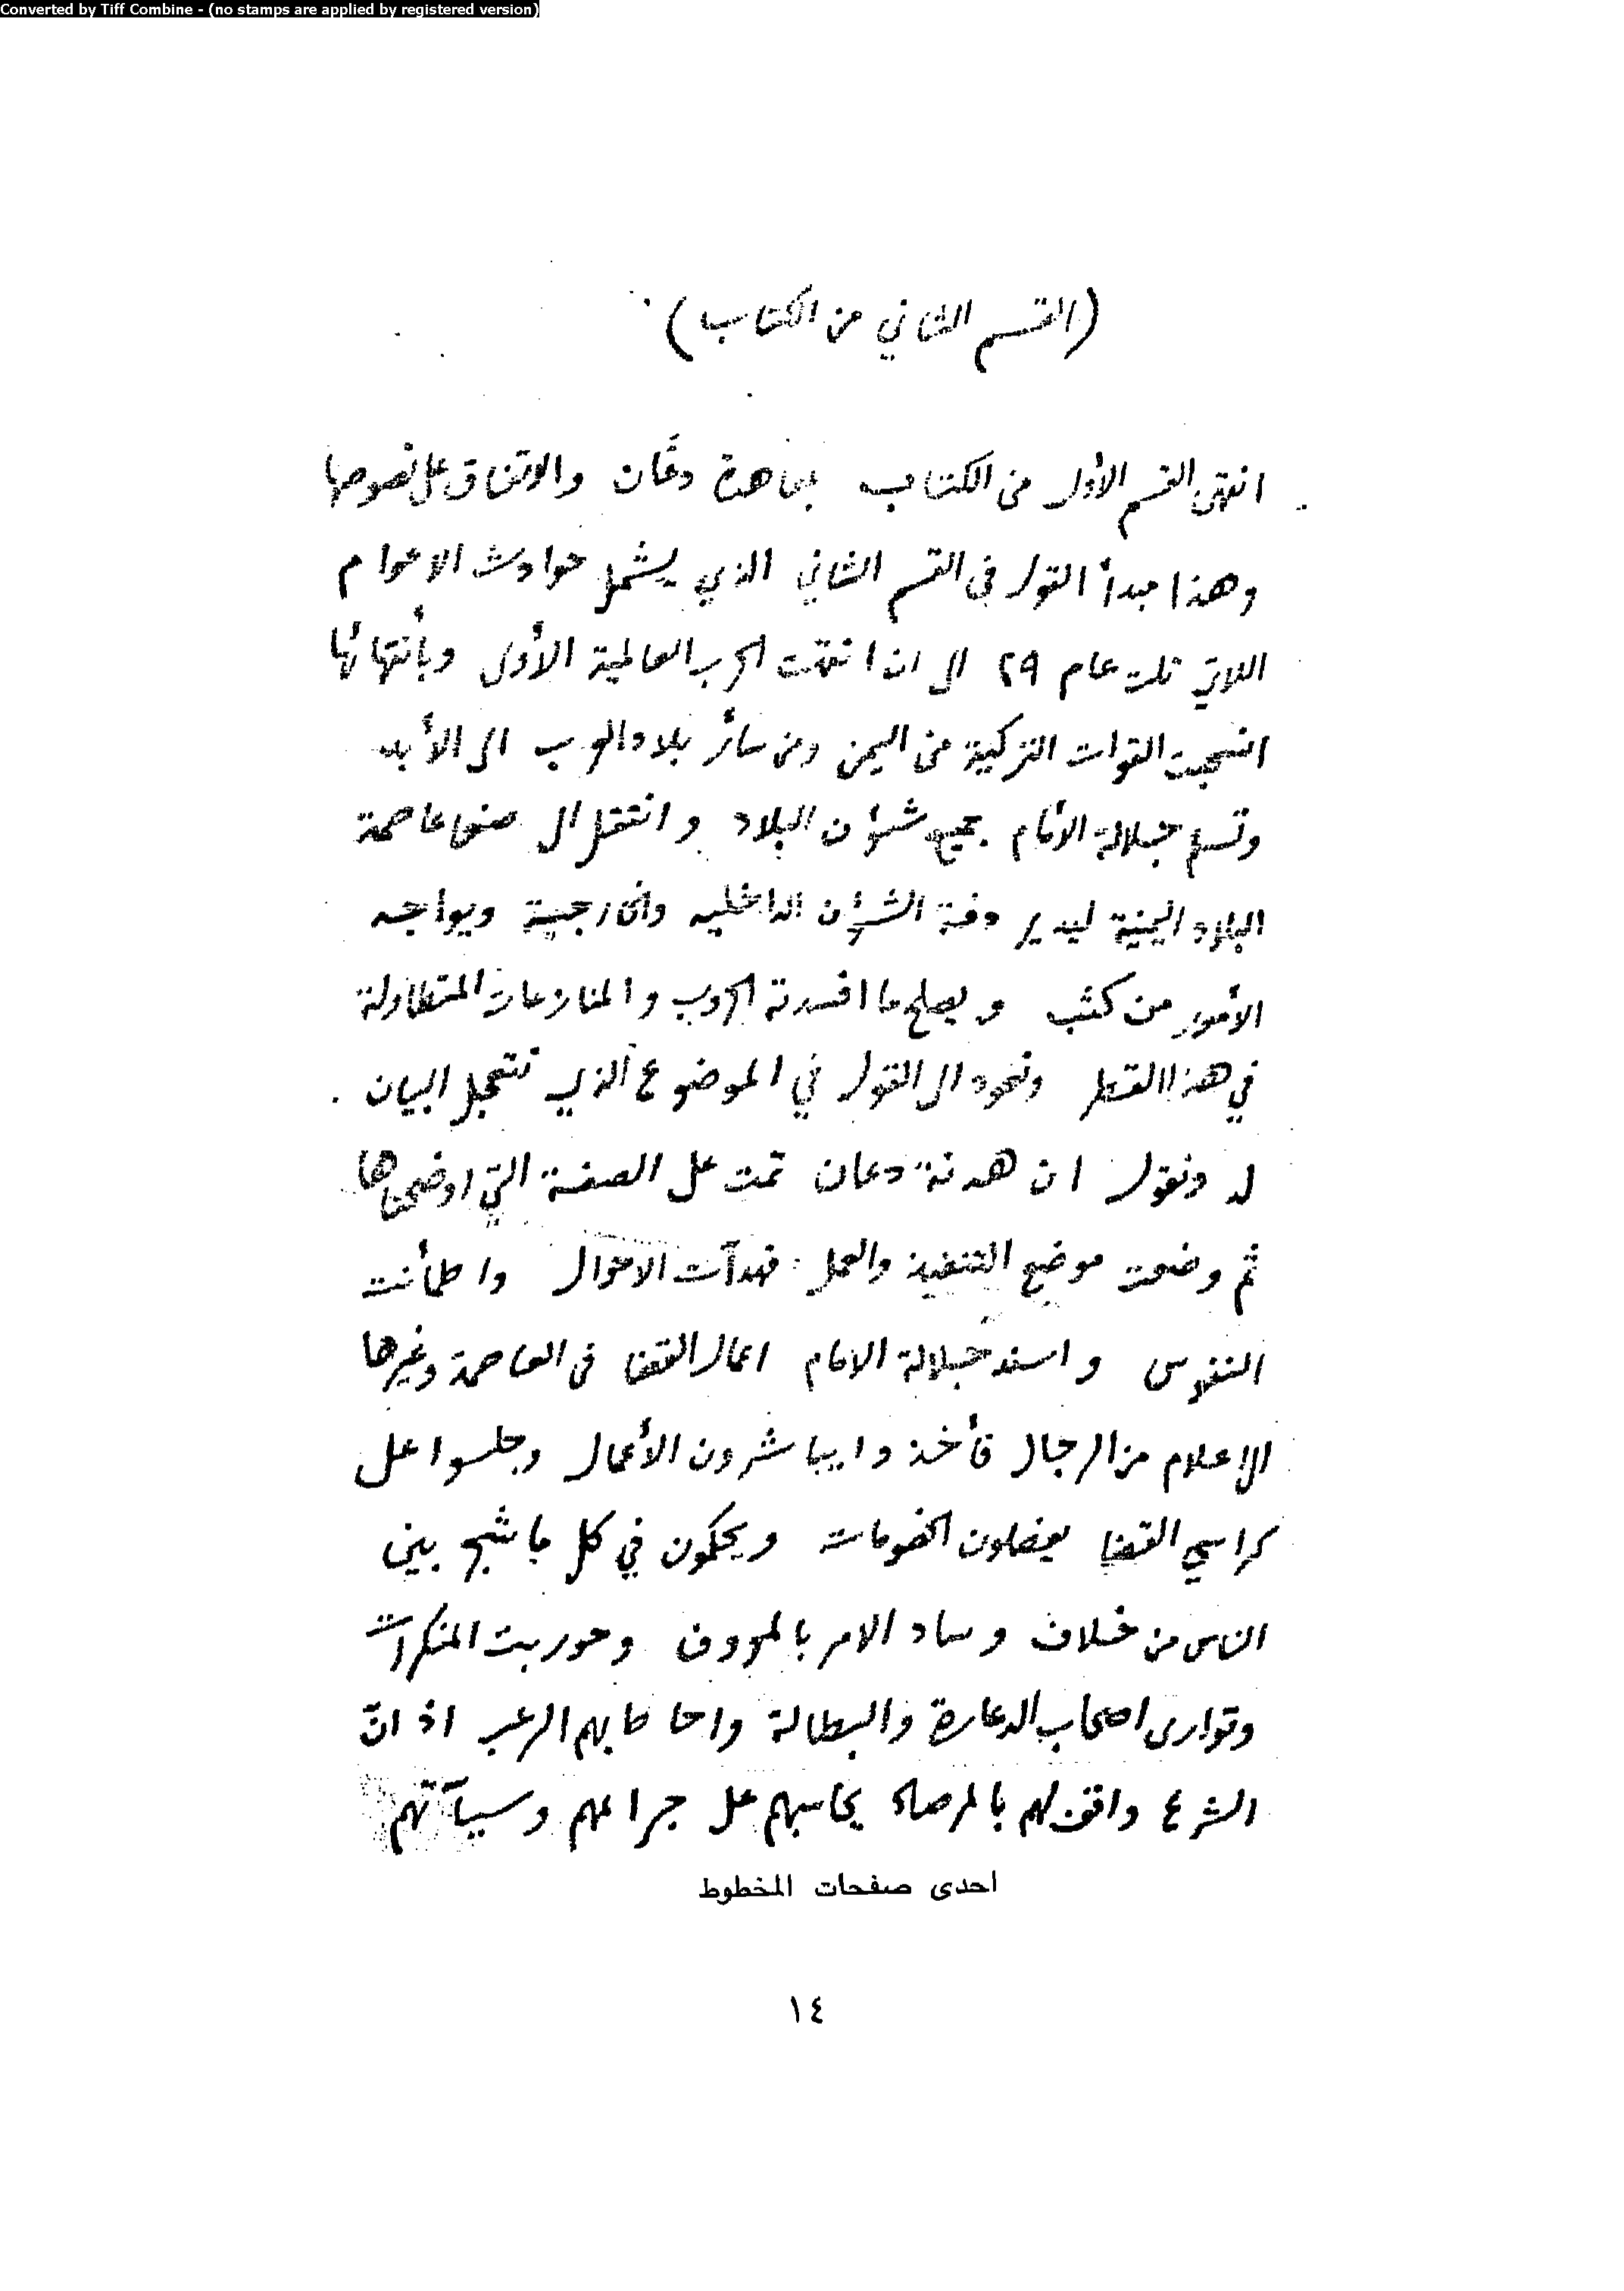 Converted by Tiff Combine - (no stamps are applied by registered version)
(القسم الثاني من الكتاب)
انتهى القسم الأول من الكتاب بمعاهدة دعّان والاتفاق على نصوصها
وهذا مبدأ القول في القسم الثاني الذي يشمل حوادث الاعوام
اللاتي تلت عام ٢٩ الى ان انتهت الحرب العالمية الأولى وبأنتهائها
انسحبت القوات التركية من اليمن ومن سائر بلاد العرب الى الأبد
وتسلم جلالة الأمام جميع شؤن البلاد وانتقل الى صنعا عاصمة
البلاد اليمنية ليدير دفة الشؤن الداخليه والخارجية ويواجه
الأمور من كثب و يصلح ما افسدته الحروب والمنازعات المتطاولة
في هذا القطر ونعود الى القول في الموضوع الذي نتعجل البيان
له ونقول ان هدنة دعان تمت على الصفة التي اوضحناها
ثم وضعت موضع التنفيذ والعمل فهدأت الاحوال واطمأنت
النفوس واسند جلالة الامام اعمال القضا في العاصمة وغيرها
الى اعلام من الرجال فأخذوا يباشرون الأعمال وجلسوا على
كراسي القضا يفصلون الخصومات ويحكمون في كل ما شجر بين
الناس من خلاف وساد الامر بالمعروف وحوربت المنكرات
وتوارى اصحاب الدعارة والبطالة واحاط بهم الرعب اذ انّ
الشرع واقف لهم بالمرصاد يحاسبهم على جرائمهم وسيآتهم
احدى صفحات المخطوط
١٤